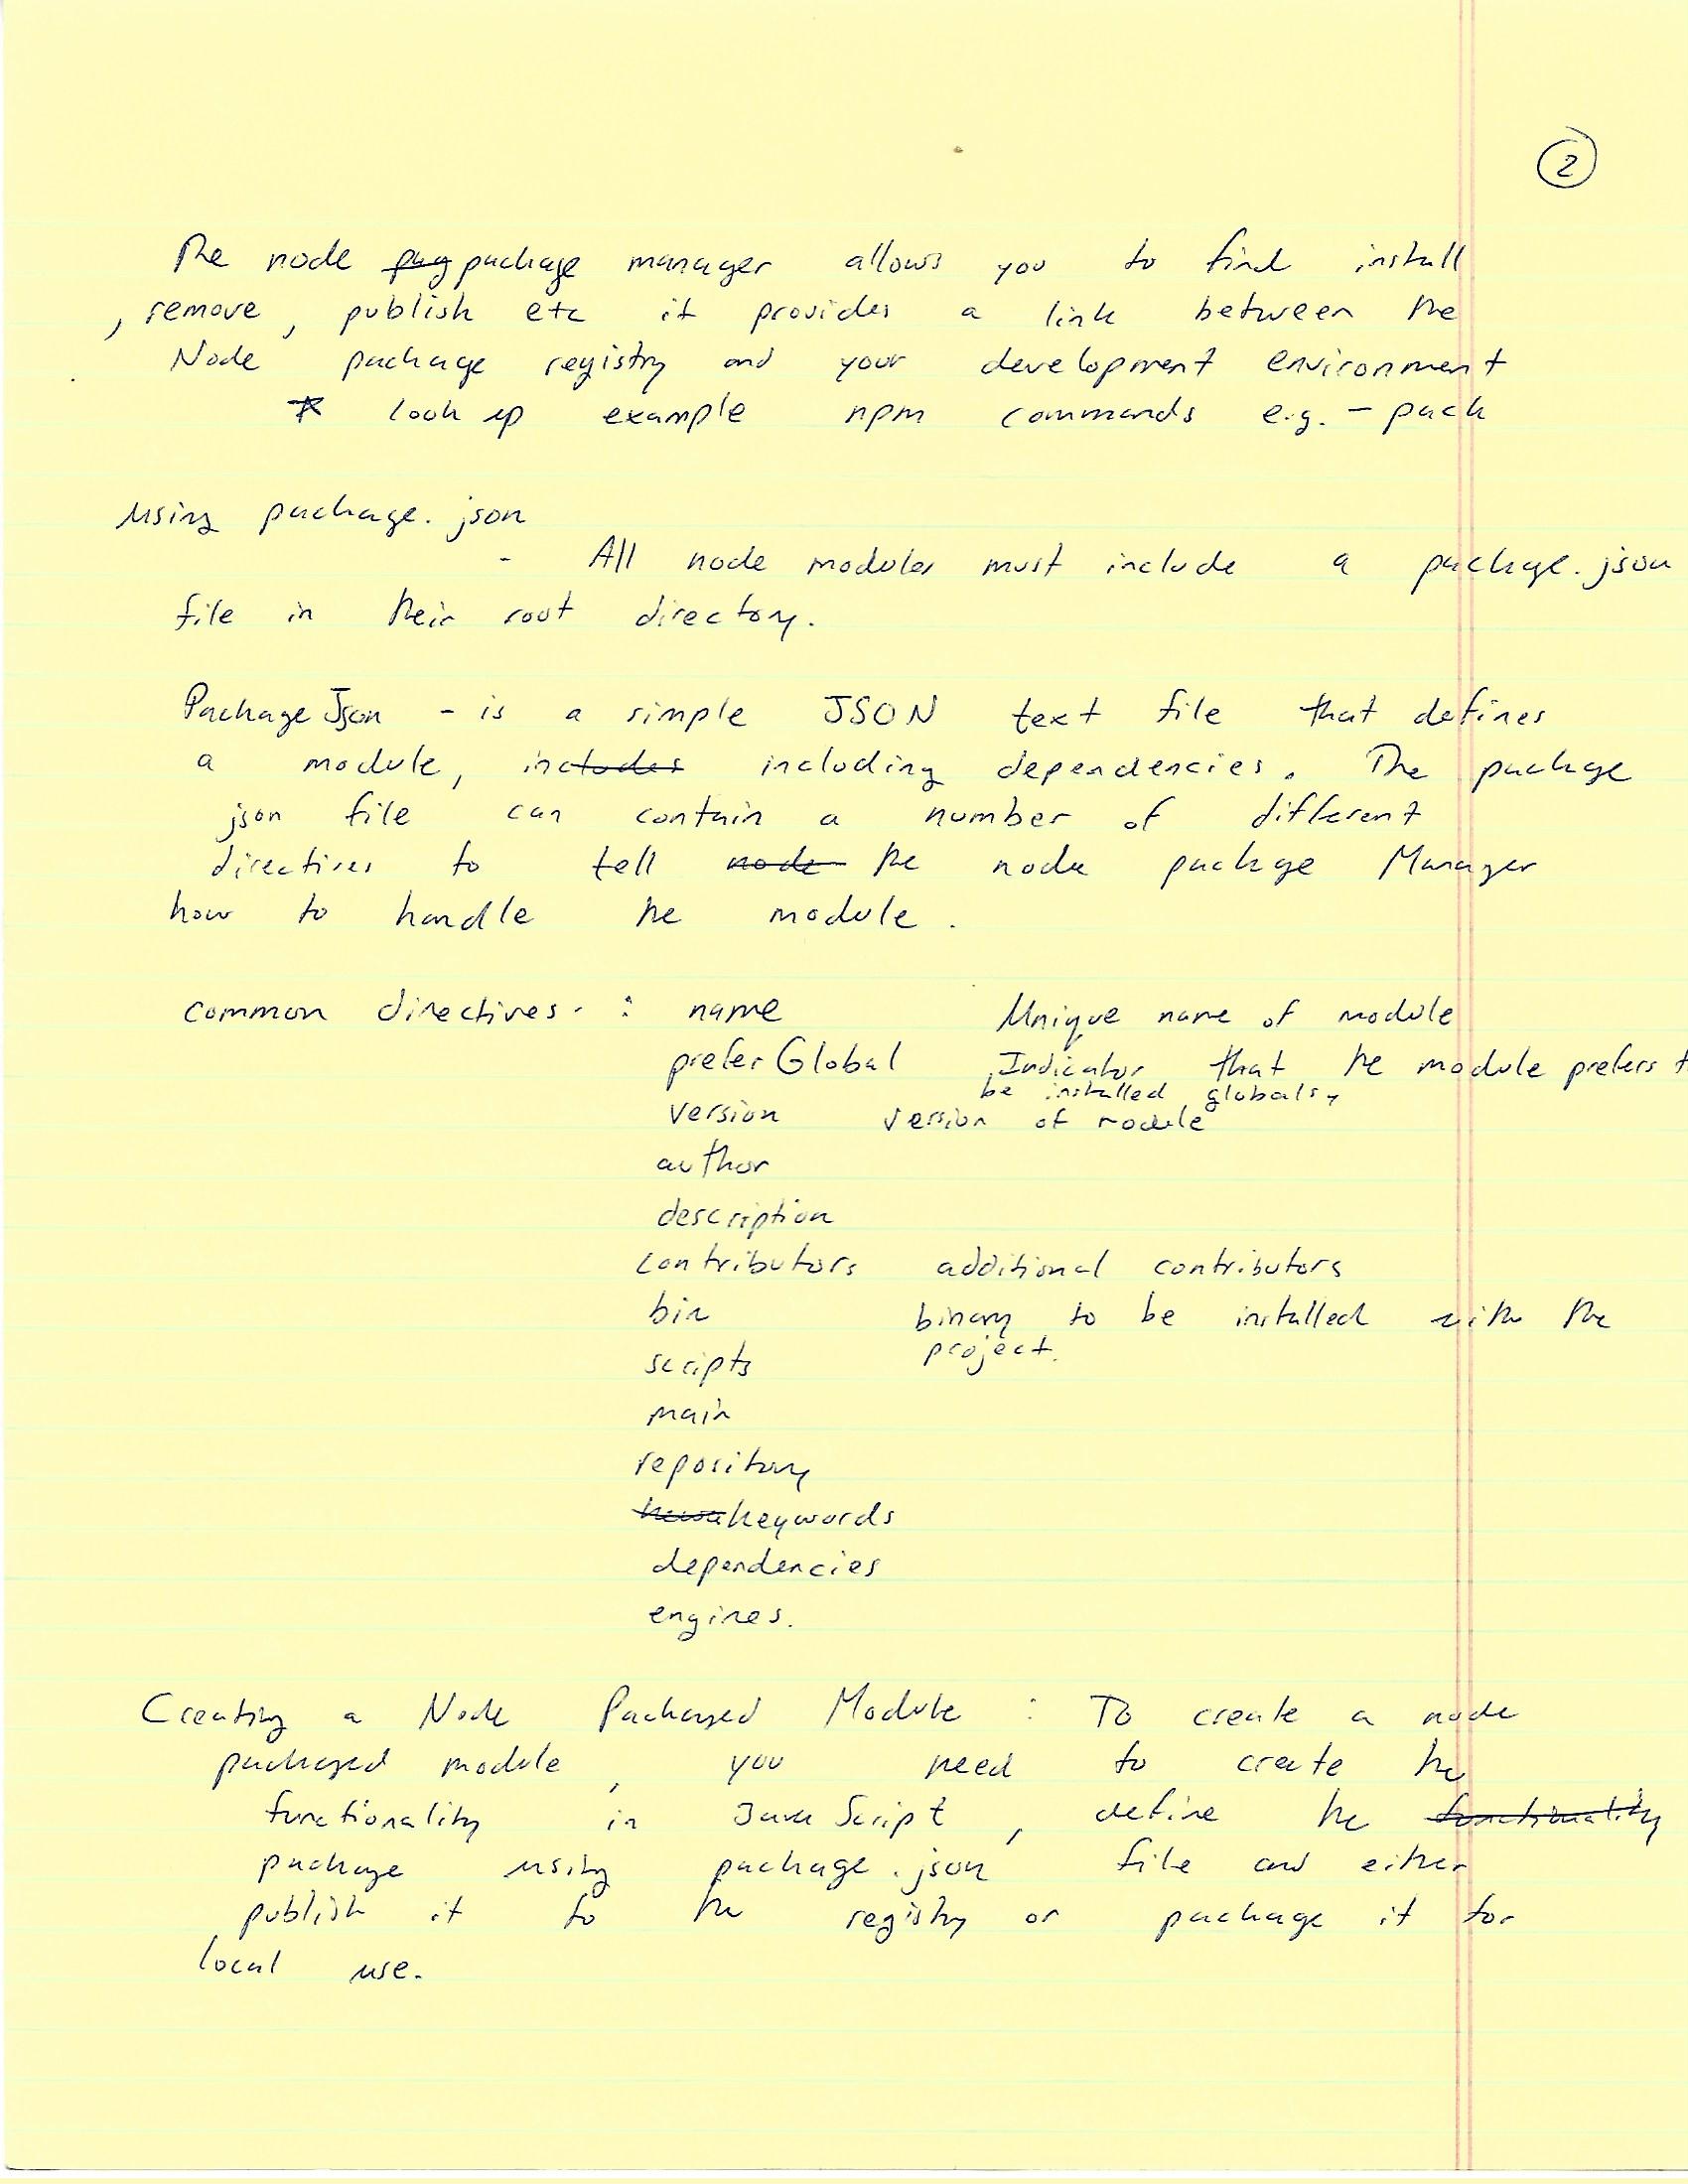 2
The node pag package manager allows you to find install
, remove, publish etc it provides a link between the
Node package registry and your development environment
* look up example npm commands e.g. - pack
Using package.json
- All node modules must include a package.json
file in their root directory.
Package Json - is a simple JSON text file that defines
a module, includes including dependencies. The package
json file can contain a number of different
directives to tell node the node package Manager
how to handle the module.
common directives. : name Unique name of module
preferGlobal Indicator that the module prefers t
be installed globally
version version of module
author
description
contributors additional contributors
bin binary to be installed with the
project.
scripts
main
repository
keywords
dependencies
engines.
Creating a Node Packaged Module : To create a node
packaged module, you need to create the
functionality in JavaScript, define the functionality
package using package.json file and either
publish it to the registry or package it for
local use.